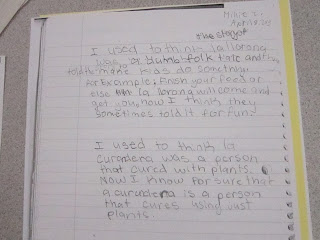 April
the story of
I used to think la llorona
was a dumb folk tale and they
told to make kids do something
for Example: finish your food or
else la lorona will come and
get you, now I think they
sometimes told it for fun.
I used to think la
curandera was a person
that cured with plants.
Now I know for sure that
a curandera is a person
that cures using just
plants.